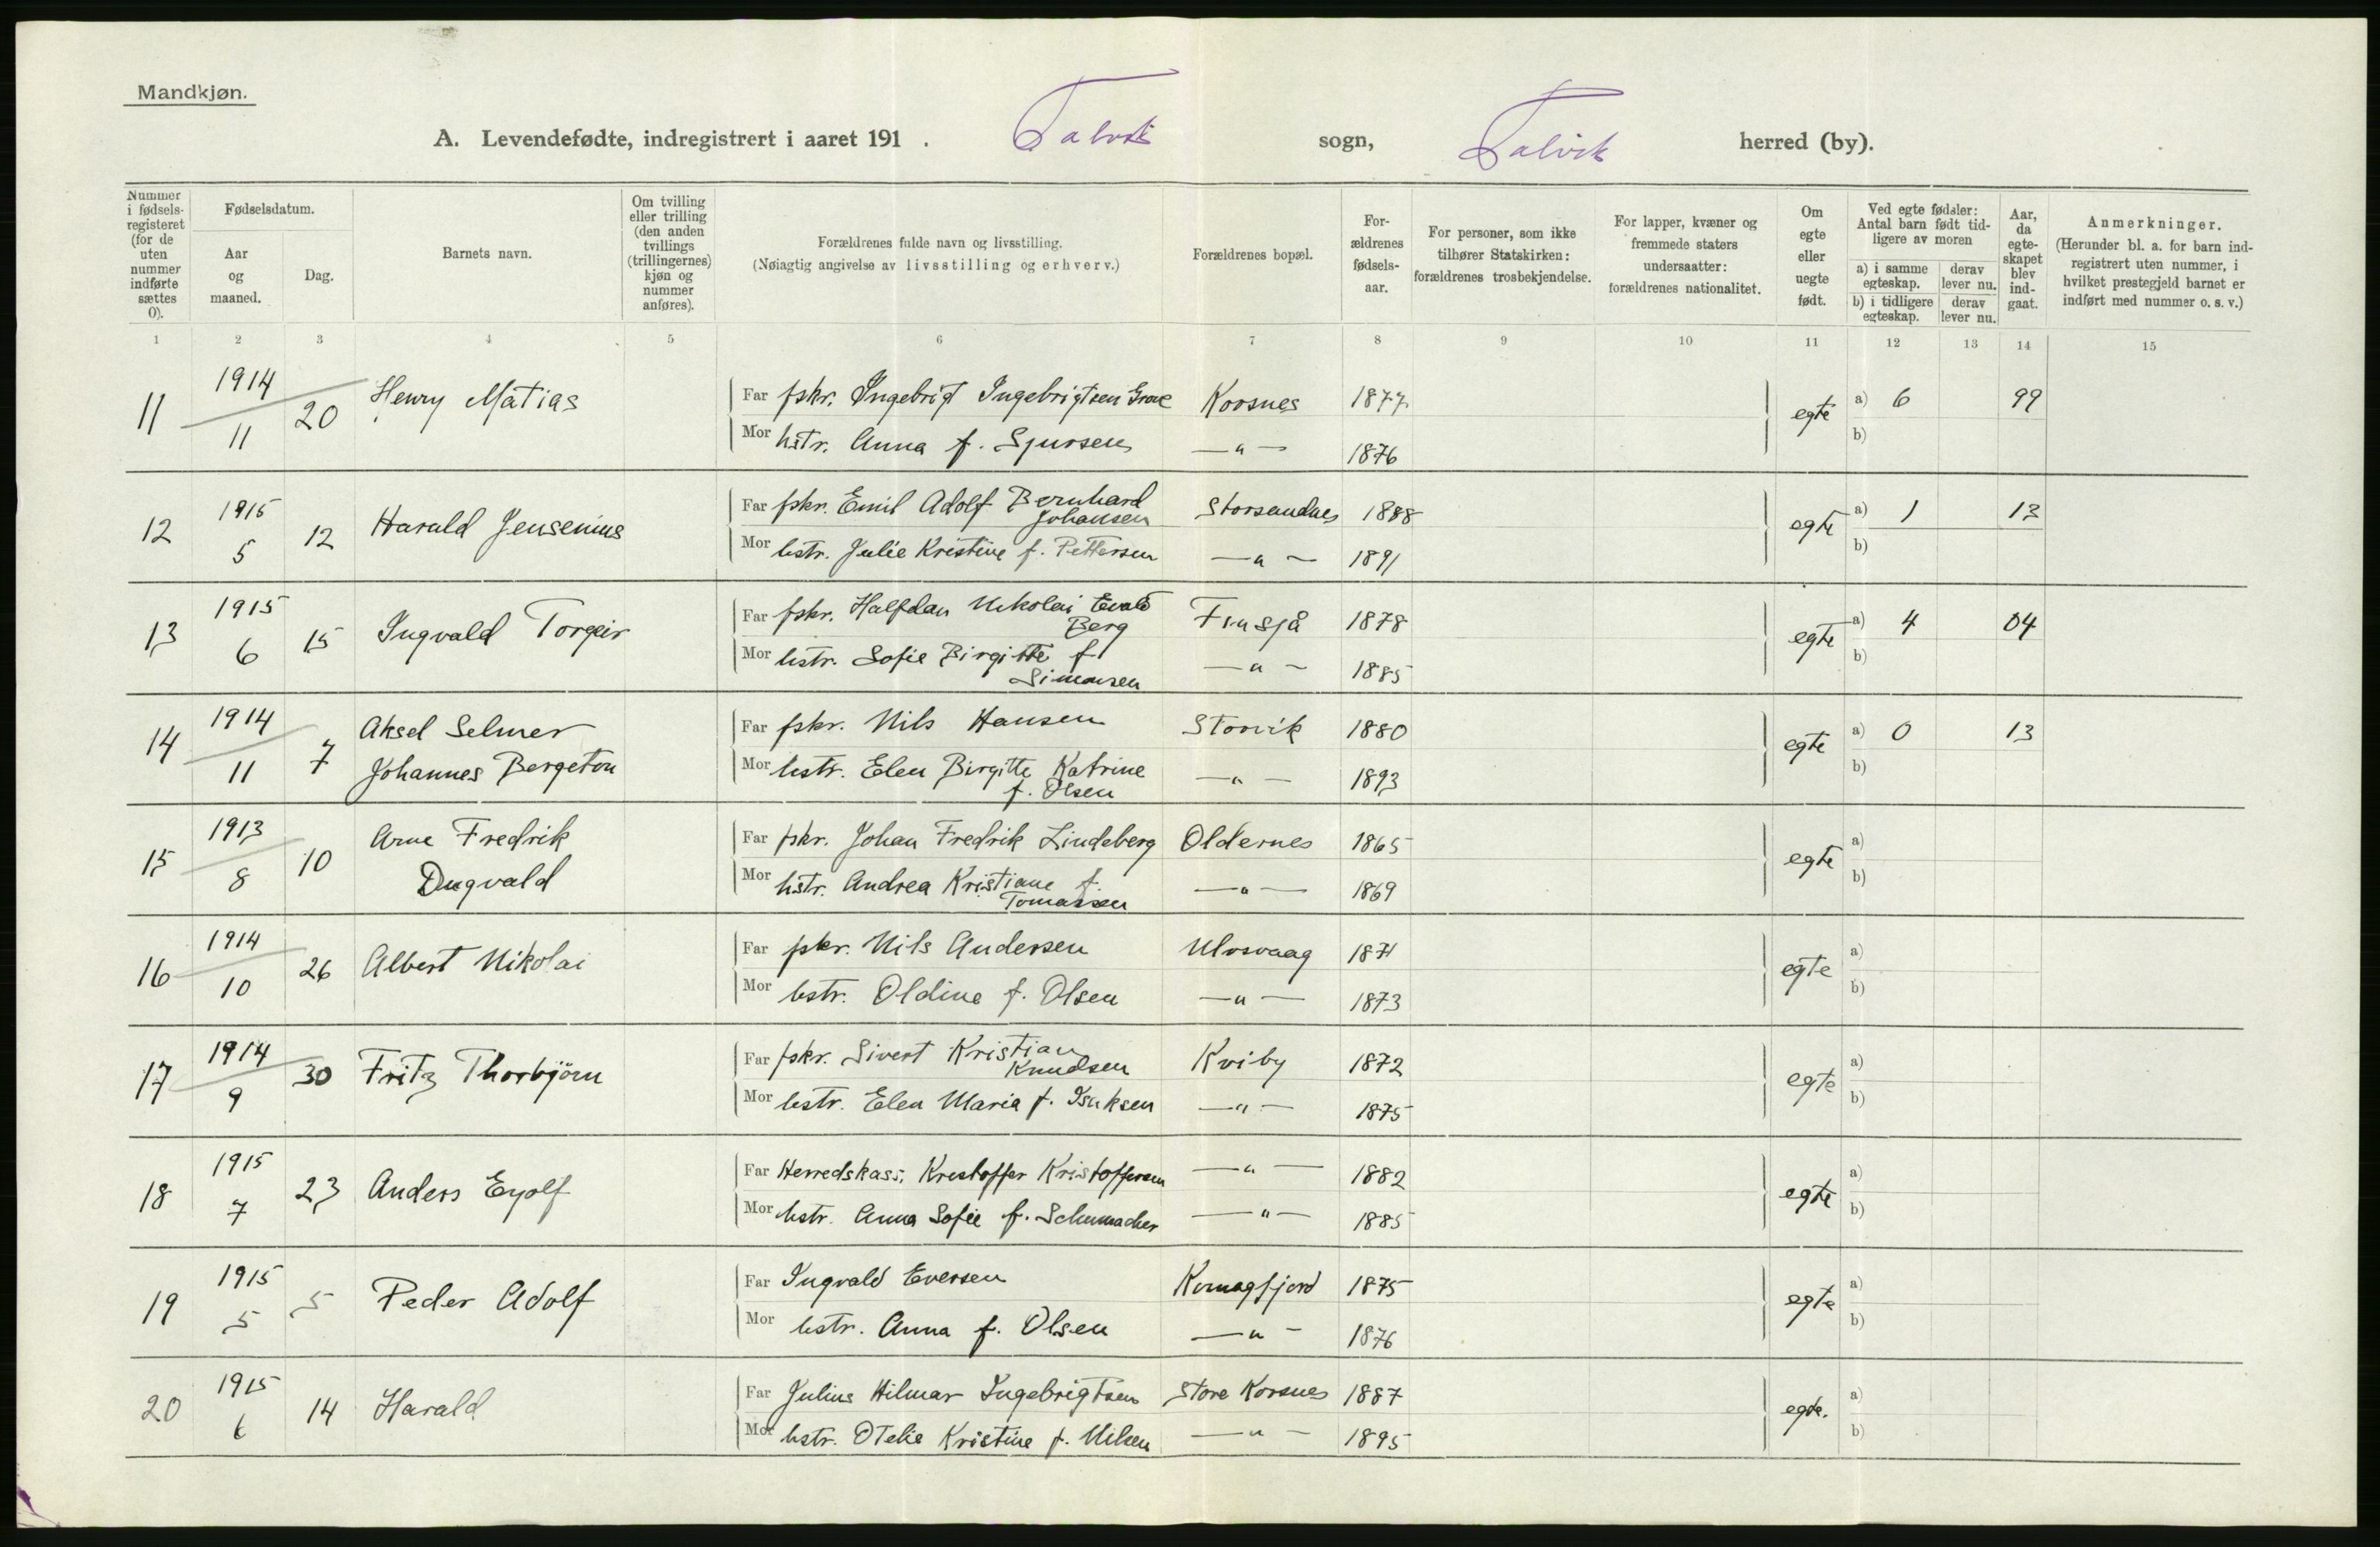 Mandkjøn.
A. Levendefødte, indregistrert i aaret 191 . Talvik sogn, Talvik herred (by).
Nummer i fødsels-registeret (for de uten nummer indførte sættes 0).
Fødselsdatum.
Aar og maaned.
Dag.
Barnets navn.
Om tvilling eller trilling (den anden tvillings (trillingernes) kjøn og nummer anføres).
Forældrenes fulde navn og livsstilling.
(Nøiagtig angivelse av livsstilling og erhverv.)
Forældrenes bopæl.
For-ældrenes fødsels-aar.
For personer, som ikke tilhører Statskirken: forældrenes trosbekjendelse.
For lapper, kvæner og fremmede staters undersaatter: forældrenes nationalitet.
Om egte eller uegte født.
Ved egte fødsler: Antal barn født tid-ligere av moren
a) i samme egteskap.
derav lever nu.
b) i tidligere egteskap.
derav lever nu.
Aar, da egte-skapet blev ind-gaat.
Anmerkninger.
(Herunder bl. a. for barn ind-registrert uten nummer, i hvilket prestegjeld barnet er indført med nummer o. s. v.)
1 2 3 4 5 6 7 8 9 10 11 12 13 14 15
11 1914 11 20 Henry Matias Far fskr. Ingebrigt Ingebrigtsen Korsnes 1877 egte a) 6 99
Mor hstr. Anna f. Sjursen —"— 1876 b)
12 1915 5 12 Harald Jensenius Far fskr. Emil Adolf Bernhard Johansen Storsandnes 1888 egte a) 1 13
Mor hstr. Julie Kristine f. Pettersen —"— 1891 b)
13 1915 6 15 Ingvald Torgeir Far fskr. Halfdan Nikolai Evald Berg 1878 egte a) 4 04
Mor hstr. Sofie Birgitte f Simonsen —"— 1885 b)
14 1914 11 7 Aksel Selmer Johannes Bergeton Far fskr. Nils Hansen Storvik 1880 egte a) 0 13
Mor hstr. Elen Birgitte Katrine f. Olsen —"— 1893 b)
15 1913 8 10 Arne Fredrik Dagvald Far fskr. Johan Fredrik Lindeberg Oldernes 1865 egte a)
Mor hstr. Andrea Kristiane f. Tomassen —"— 1869 b)
16 1914 10 26 Albert Nikolai Far fskr. Nils Andersen Ulvsvaag 1871 egte a)
Mor hstr. Oldine f. Olsen —"— 1873 b)
17 1914 9 30 Fritz Thorbjörn Far fskr. Sivert Kristian Knudsen Kviby 1872 egte a)
Mor hstr. Elen Maria f. Isaksen —"— 1875 b)
18 1915 7 23 Anders Eyolf Far Herredskass. Kristoffer Kristoffersen —"— 1882 egte a)
Mor hstr. Anna Sofie f. Schumacher —"— 1885 b)
19 1915 5 5 Peder Adolf Far Ingvald Eversen Komagfjord 1875 egte a)
Mor hstr. Anna f. Olsen —"— 1876 b)
20 1915 6 14 Harald Far Julius Hilmar Ingebrigtsen Store Korsnes 1887 egte. a)
Mor hstr. Otelie Kristine f. Nilsen —"— 1895 b)